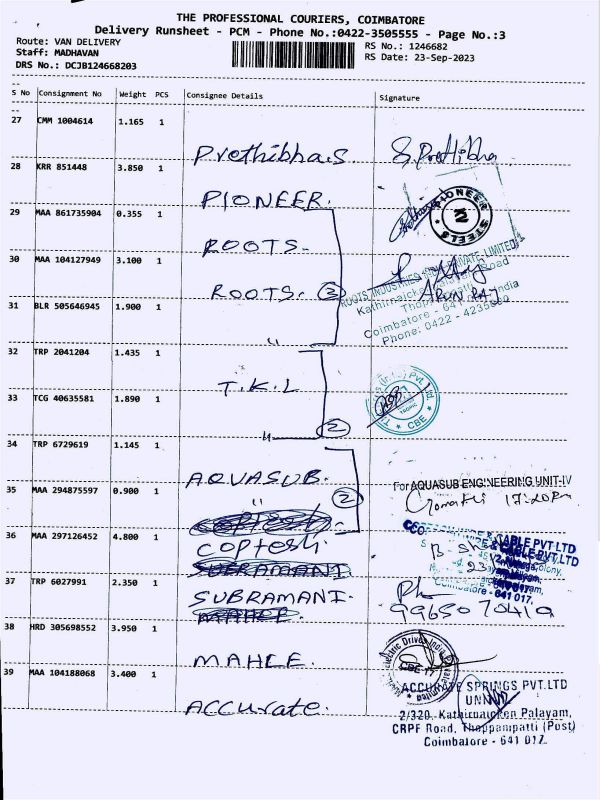 THE PROFESSIONAL COURIERS, COIMBATORE
Delivery Runsheet - PCM - Phone No.:0422-3505555 - Page No.:3
Route: VAN DELIVERY
RS No.: 1246682
Staff: MADHAVAN
RS Date: 23-Sep-2023
DRS No.: DCJB124668203
S No Consignment No Weight PCS Consignee Details Signature
27 CMM 1004614 1.165 1
Prethibha.S S. Prethibha
28 KRR 851448 3.850 1
PIONEER.
PIONEER STEELS 2
29 MAA 861735904 0.355 1
ROOTS.
30 MAA 104127949 3.100 1
ROOTS. 3
ROOTS INDUSTRIES PRIVATE LIMITED
Kathirnaicken Road
ARUN RAJ
Thoppampatti India
Coimbatore - 641
Phone: 0422 -
31 BLR 505646945 1.900 1
"
32 TRP 2041204 1.435 1
T.K.L
33 TCG 40635581 1.890 1
" 2
Pvt. Ltd. * CBE *
34 TRP 6729619 1.145 1
AQUASUB.
For AQUASUB ENGINEERING UNIT-IV
35 MAA 294875597 0.900 1
" 2
Gomathi 17:20Pm
36 MAA 297126452 4.800 1
COPTECH
CABLE PVT LTD
Coimbatore - 641 017.
37 TRP 6027991 2.350 1
SUBRAMANI.
38 HRD 305698552 3.950 1
MAHLE.
Electric Drives India
CBE-17
39 MAA 104188068 3.400 1
Accurate.
ACCURATE SPRINGS PVT.LTD
2/320, Kathirnaicken Palayam,
CRPF Road, Thoppampatti (Post)
Coimbatore - 641 017.